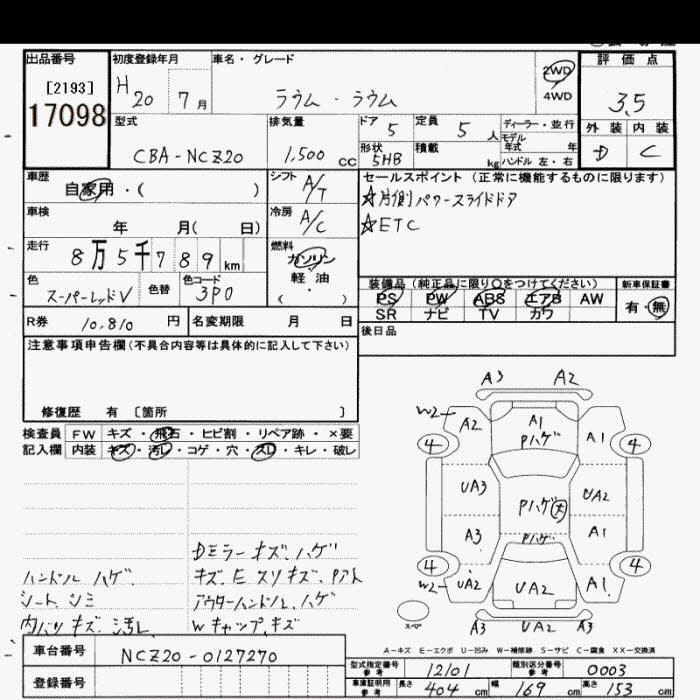 出品番号 初度登録年月 車名・グレード 2WD 4WD 評価点
[2193]
17098
H 20 7月 ラウム・ラウム 3.5
型式 排気量 ドア 5 定員 5人 ディーラー・並行 モデル年式 年 外装 内装
CBA-NCZ20 1,500 CC 形状 5HB 積載 kg ハンドル 左・右 D C
車歴 シフト A/T セールスポイント(正常に機能するものに限ります)
自家用・( ) ☆片側パワースライドドア
車検 冷房 A/C ☆ETC
年 月( 日)
走行 燃料
8万5千789km ガソリン
軽・油
( )
色 色替 色コード 装備品(純正品に限り○をつけてください) 新車保証書
スーパーレッドV 3P0 PS PW ABS エアB AW 有・無
SR ナビ TV カワ
R券 10,810 円 名変期限 月 日 後日品
注意事項申告欄(不具合内容等は具体的に記入して下さい)
修復歴 有 〔箇所 〕
検査員 FW キズ・飛石・ヒビ割・リペア跡・×要
記入欄 内装 キズ・汚レ・コゲ・穴・スレ・キレ・破レ
A3 A2
W2 A2 A1 A1
Pハゲ
4 4
UA3 Pハゲ大 UA2
A3 Pハゲ A1
4 4
W2 UA2 UA2 A1
スペア A3 UA2 A3
Dミラーキズ、ハゲ
ハンドルハゲ キズ、E スリキズ、Pアト
シート、シミ アウターハンドル、ハゲ
内バリキズ、汚レ Wキャップ、キズ
A-キズ E-エクボ U-凹み W-補修跡 S-サビ C-腐食 XX-交換済
車台番号 NCZ20-0127270
登録番号
型式指定番号 参考 12101 類別区分番号 参考 0003
車庫証明用 参考 長さ 404 cm 幅 169 cm 高さ 153 cm